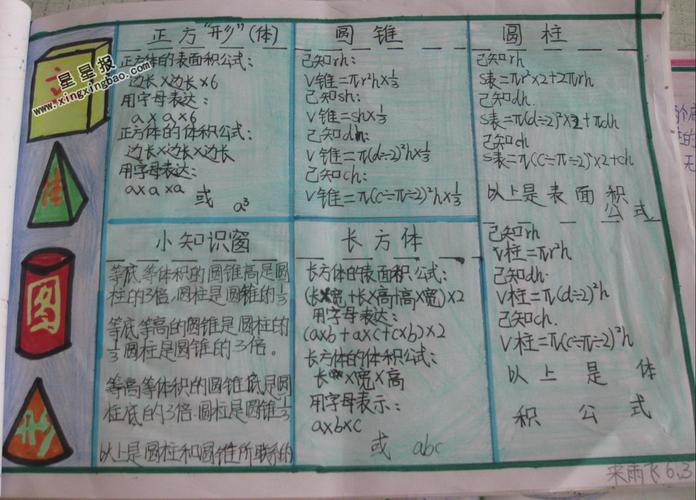 立
体
圆
形
星星报
www.xingxingbao.com
正方"形"(体)
正方体的表面积公式:
边长×边长×6
用字母表达:
a×a×6
正方体的体积公式:
边长×边长×边长
用字母表达:
a×a×a 或 a³
圆锥
已知rh:
V锥=πr²h×⅓
已知sh:
V锥=sh×⅓
已知dh:
V锥=π(d÷2)²h×⅓
已知ch:
V锥=π(c÷π÷2)²h×⅓
圆柱
已知rh
S表=πr²×2+2πrh
已知dh.
S表=π(d÷2)²×2+πdh
已知ch
S表=π(c÷π÷2)²×2+ch
以上是表面积
公式
已知rh
V柱=πr²h
已知dh.
V柱=π(d÷2)²h
已知ch.
V柱=π(c÷π÷2)²h
以上是体
积公式
小知识窗
等底等体积的圆锥高是圆
柱的3倍.圆柱是圆锥的⅓
等底等高的圆锥是圆柱的
⅓圆柱是圆锥的3倍。
等高等体积的圆锥底是圆
柱底的3倍.圆柱是圆锥⅓
以上是圆柱和圆锥所联系的
长方体
长方体的表面积公式:
(长×宽+长×高+高×宽)×2
用字母表达:
(a×b+a×c+c×b)×2
长方体的体积公式:
长×宽×高
用字母表示:
a×b×c
或 abc
6.3